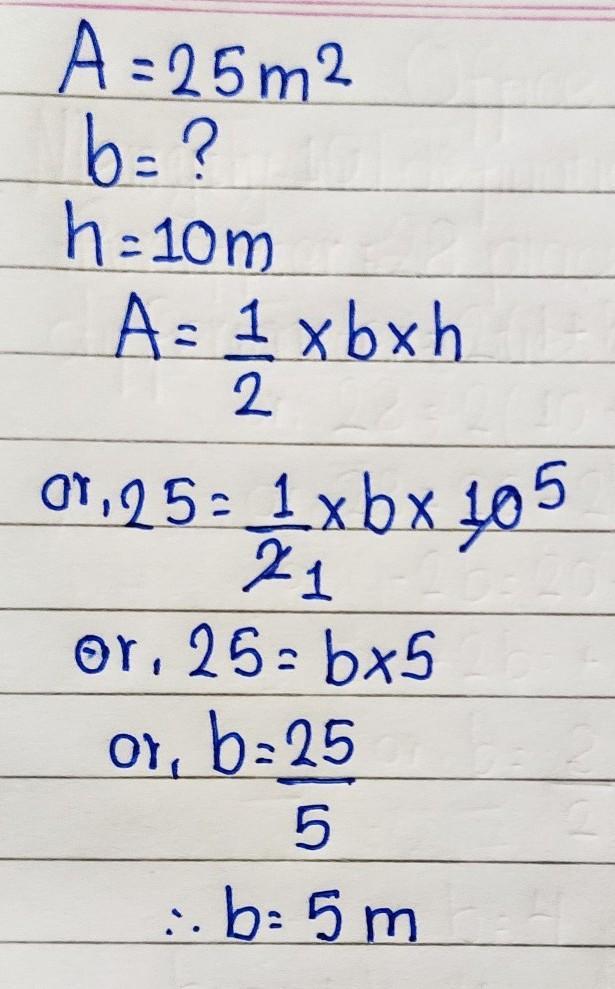 A = 25 m²
b = ?
h = 10 m
A = 1/2 × b × h
or, 25 = 1/2 1 × b × 10 5
or, 25 = b × 5
or, b = 25/5
∴ b = 5 m